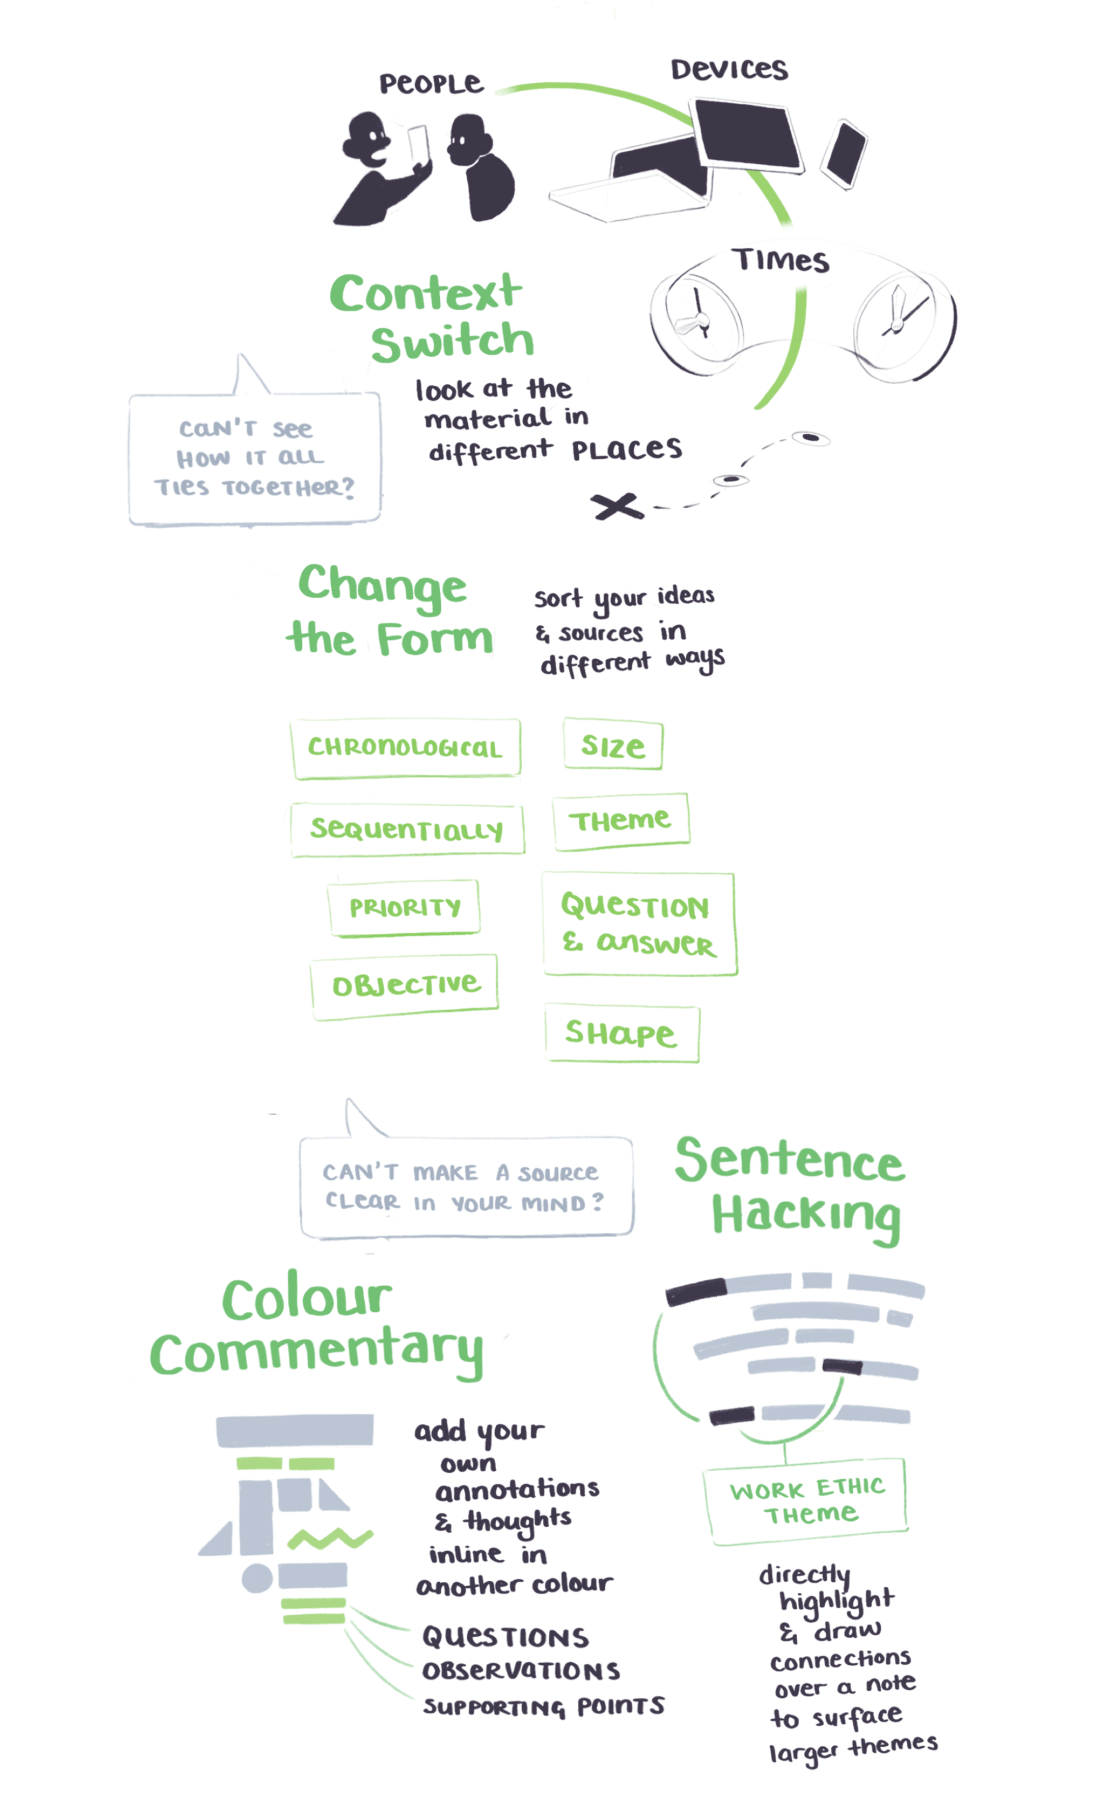 PEOPLE
DEVICES
TIMES
Context
Switch
look at the
material in
different PLACES
CAN'T SEE
HOW IT ALL
TIES TOGETHER?
Change
the Form
sort your ideas
& sources in
different ways
CHRONOLOGICAL
SIZE
SEQUENTIALLY
THEME
PRIORITY
QUESTION
& ANSWER
OBJECTIVE
SHAPE
CAN'T MAKE A SOURCE
CLEAR IN YOUR MIND?
Sentence
Hacking
Colour
Commentary
add your
own
annotations
& thoughts
inline in
another colour
QUESTIONS
OBSERVATIONS
SUPPORTING POINTS
WORK ETHIC
THEME
directly
highlight
& draw
connections
over a note
to surface
larger themes